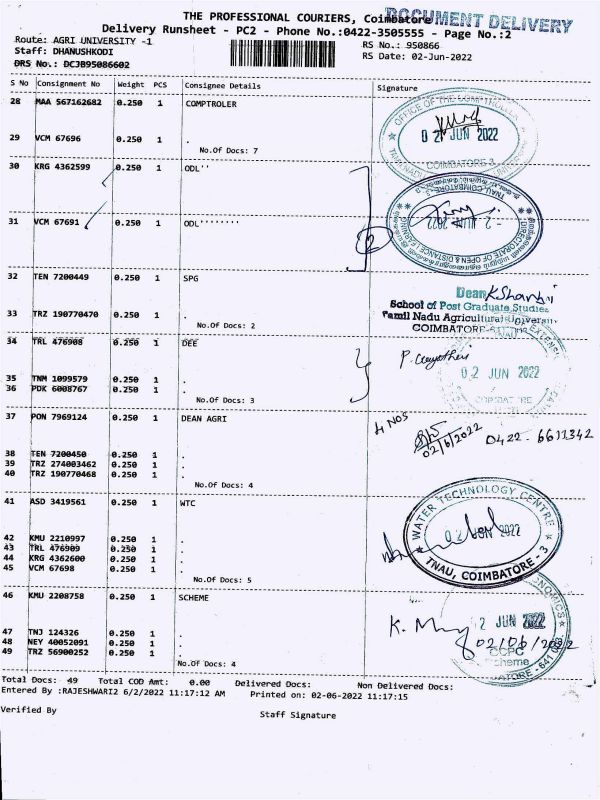 THE PROFESSIONAL COURIERS, Coimbatore
DOCUMENT DELIVERY
Delivery Runsheet - PC2 - Phone No.:0422-3505555 - Page No.:2
Route: AGRI UNIVERSITY -1
RS No.: 950866
Staff: DHANUSHKODI
RS Date: 02-Jun-2022
DRS No.: DCJB95086602
S No Consignment No Weight PCS Consignee Details Signature
28 MAA 567162682 0.250 1 COMPTROLER
OFFICE OF THE COMPTROLLER
02 JUN 2022
COIMBATORE-3
29 VCM 67696 0.250 1 .
No.Of Docs: 7
30 KRG 4362599 0.250 1 ODL''
TNAU, COIMBATORE
- 2 JUN 2022
DIRECTORATE OF OPEN & DISTANCE LEARNING
31 VCM 67691 0.250 1 ODL'''''''
2
32 TEN 7200449 0.250 1 SPG
Dean
School of Post Graduate Studies
Tamil Nadu Agricultural University
COIMBATORE
33 TRZ 190770470 0.250 1 .
No.Of Docs: 2
34 TRL 476908 0.250 1 DEE
02 JUN 2022
35 TNM 1099579 0.250 1 .
36 PDK 6008767 0.250 1 .
No.Of Docs: 3
37 PON 7969124 0.250 1 DEAN AGRI
4 NOS
02/6/2022
0422-6611342
38 TEN 7200450 0.250 1 .
39 TRZ 274003462 0.250 1 .
40 TRZ 190770468 0.250 1 .
No.Of Docs: 4
41 ASD 3419561 0.250 1 WTC
WATER TECHNOLOGY CENTRE
02 JUN 2022
TNAU, COIMBATORE - 3
42 KMU 2210997 0.250 1 .
43 TRL 476909 0.250 1 .
44 KRG 4362600 0.250 1 .
45 VCM 67698 0.250 1 .
No.Of Docs: 5
46 KMU 2208758 0.250 1 SCHEME
2 JUN 2022
02/06/2022
CCPC
Scheme
47 TNJ 124326 0.250 1 .
48 NEY 40052091 0.250 1 .
49 TRZ 56900252 0.250 1 .
No.Of Docs: 4
Total Docs: 49 Total COD Amt: 0.00 Delivered Docs: Non Delivered Docs:
Entered By :RAJESHWARI2 6/2/2022 11:17:12 AM Printed on: 02-06-2022 11:17:15
Verified By
Staff Signature